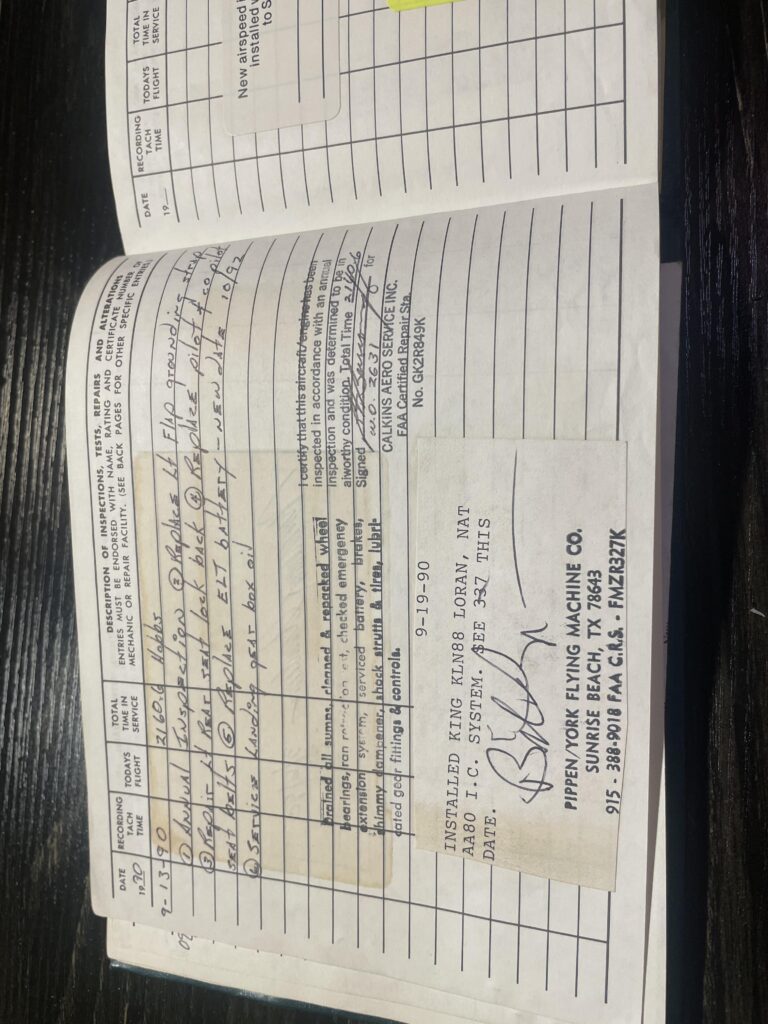 DESCRIPTION OF INSPECTIONS, TESTS, REPAIRS AND ALTERATIONS
ENTRIES MUST BE ENDORSED WITH NAME, RATING AND CERTIFICATE NUMBER OF
MECHANIC OR REPAIR FACILITY. (SEE BACK PAGES FOR OTHER SPECIFIC ENTRIES)
DATE
1990
RECORDING
TACH
TIME
TODAYS
FLIGHT
TOTAL
TIME IN
SERVICE
9-13-90 2160.6 Hobbs
① Annual Inspection ② Replace Lt Flap grounding strap
③ Repair Lt Rear seat lock back ④ Replace pilot & co pilot
seat belts ⑤ Replace ELT battery - New date 10/92
⑥ Service Landing gear box oil
Drained all sumps, cleaned & repacked wheel
bearings, ran retraction checked emergency
extension system, serviced battery, brakes,
shimmy dampener, shock struts & tires, lubri-
cated gear fittings & controls.
I certify that this aircraft/engine has been
inspected in accordance with an annual
inspection and was determined to be in
airworthy condition. Total Time 2160.6
Signed for
W.O. 2631
CALKINS AERO SERVICE INC.
FAA Certified Repair Sta.
No. GK2R849K
9-19-90
INSTALLED KING KLN88 LORAN, NAT
AA80 I.C. SYSTEM. SEE 337 THIS
DATE.
PIPPEN/YORK FLYING MACHINE CO.
SUNRISE BEACH, TX 78643
915 - 388-9018 FAA C.R.S. - FMZR327K
DATE
19
RECORDING
TACH
TIME
TODAYS
FLIGHT
TOTAL
TIME IN
SERVICE
New airspeed
installed
to S